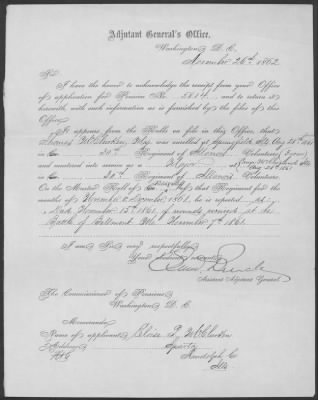 Adjutant General's Office,
Washington, D. C.
November 26th, 1862
Sir:
I have the honor to acknowledge the receipt from your Office
of application for Pension No. 5814, and to return it
herewith, with such information as is furnished by the files of this
Office.
It appears from the Rolls on file in this Office, that
was enrolled at Springfield
in Co. 30th Regiment of Illinois Volunteers,
and mustered into service as a Major at
in Co. 30th Regiment of Illinois Volunteers
On the Muster Roll of Co. of that Regiment for the
months of November & December 1861, he is reported
Died November 15th 1861, of wounds received at the
Battle of Belmont Mo. November 7th 1861.
I am Sir, very respectfully,
Your obedient servant,
Assistant Adjutant General.
The Commissioner of Pensions
Washington, D. C.
Memoranda:
Name of applicant, Eloise
Address, Sparta,
Randolph Co
Ills